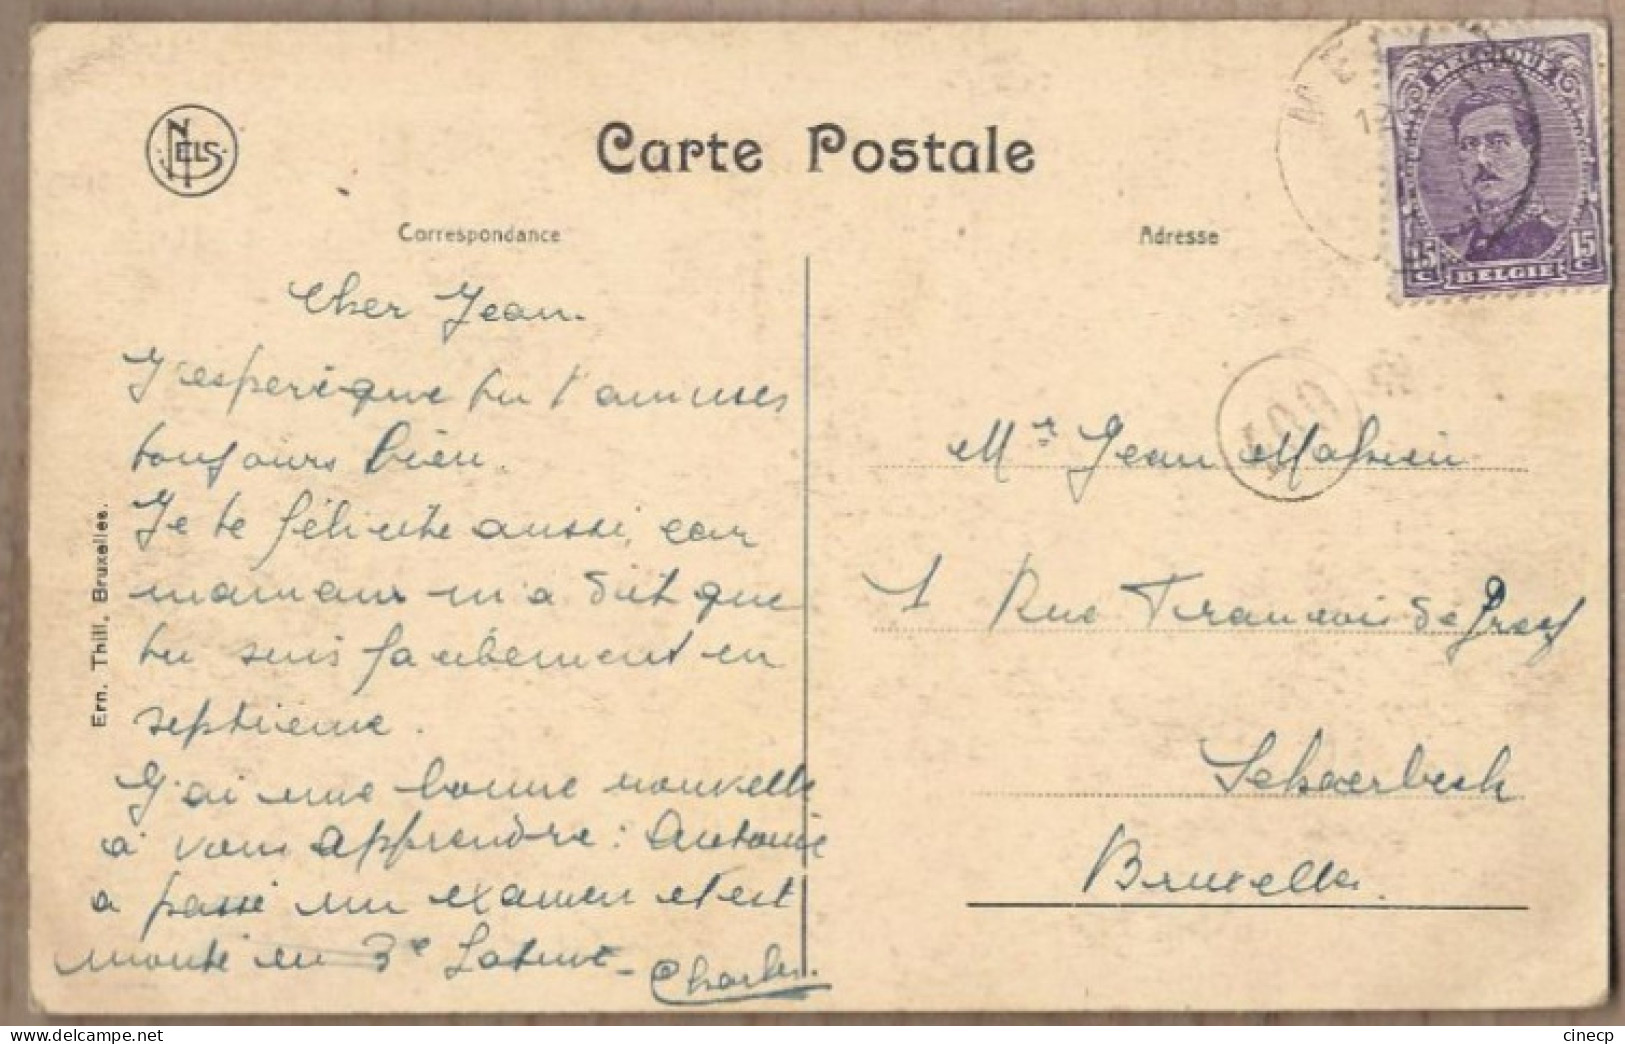 NELS
Carte Postale
BELGIQUE
15 c BELGIE 15 c
Correspondance
Adresse
Cher Jean.
J'espère que tu t'amuses
toujours bien.
Je te félicite aussi, car
maman m'a dit que
tu suis facilement en
septième.
J'ai une bonne nouvelle
à vous apprendre : Antoine
a passé un examen et est
monté en 3e Latine -
Charles.
Ern. Thill, Bruxelles.
Mr Jean Mahieu
1 Rue François de
Schaerbeek
Bruxelles.
cinecp